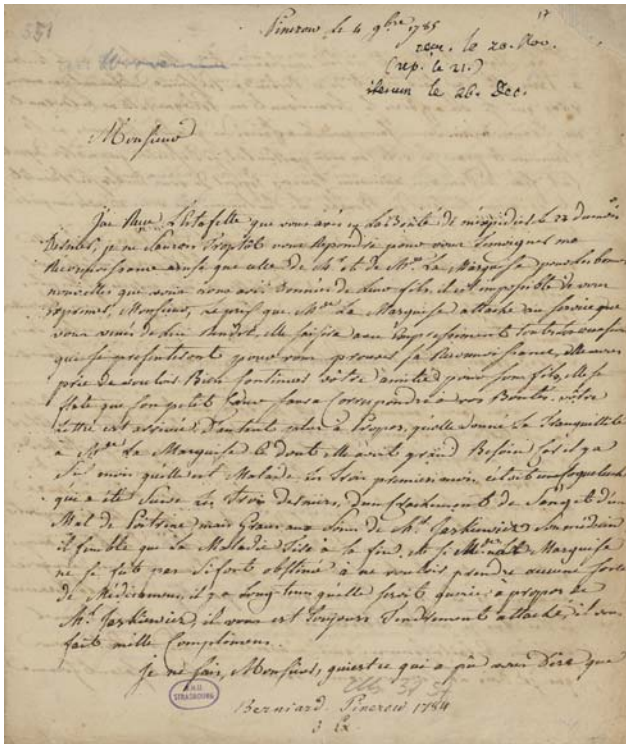 351
17
Pinerow le 4 9bre 1785
reçu. le 20. Nov.
(rep. le 21.)
iterum le 26. Dec.
Monsieur
J'ai Reçu L'Estafette que vous avés eu la Bonté de m'expedier le 23 du mois
Dernier, je ne saurois trop tôt vous Repondre pour vous temoigner ma
Reconnoissance ainsi que celle de Mr. et de Mde. La Marquise pour les bonnes
nouvelles que vous nous avés Données de Leur fils, il est impossible de vous
exprimer, Monsieur, Le prix que Mde. La Marquise attache au service que
vous venés de Lui Rendre, elle saisira avec empressement toutes les occasions
qui se presenteront pour vous prouver sa Reconnoissance, elle vous
prie de vouloir Bien Continuer vôtre amitié pour son fils, elle se
flate que son petit Coeur saura Correspondre à vos Bontés. vôtre
Lettre est arrivée D'autant mieux à Propos, qu'elle donne La tranquillité
à Mde. La Marquise & dont elle avoit grand Besoin car il y a
Six mois qu'elle est Malade. Les trois premiers mois c'étoit une coqueluche
qui a été Suivie Les trois derniers, d'un Crachement de Sang et d'un
Mal de Poitrine mais Graces aux Soins de Mr. Jaskiewicz son médecin
il semble que La Maladie tire à la fin, et si Mde. La Marquise
ne se fut pas si fort obstinée à ne vouloir prendre aucune sorte
de Médicament, il y a Long-tems qu'elle seroit guerie. à propos de
Mr. Jaskiewicz, il vous est toujours tendrement attaché, il vous
fait mille Complimens.
Je ne sais, Monsieur, qui est ce qui a pû vous Dire que
B.N.U.
STRASBOURG
Berniard. Pinerow 1784
3 Ex